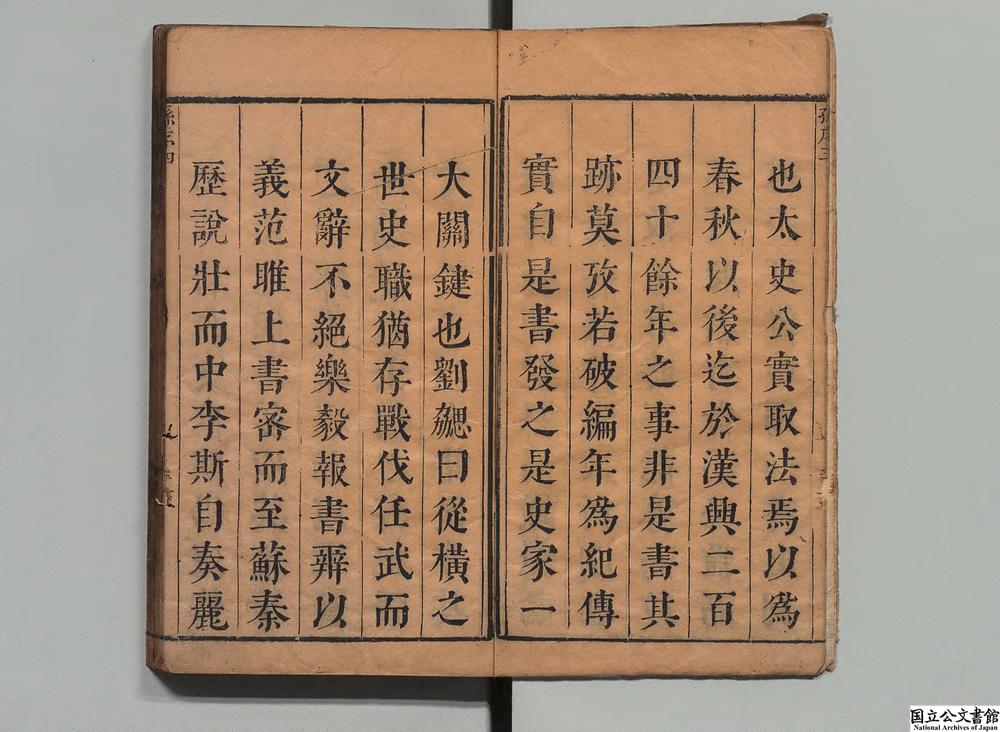 也太史公實取法焉以爲
春秋以後迄於漢興二百
四十餘年之事非是書其
跡莫攷若破編年爲紀傳
實自是書發之是史家一
大關鍵也劉勰曰從橫之
世史職猶存戰伐任武而
文辭不絕樂毅報書辨以
義范雎上書密而至蘇秦
歷說壯而中李斯自奏麗
国立公文書館
National Archives of Japan